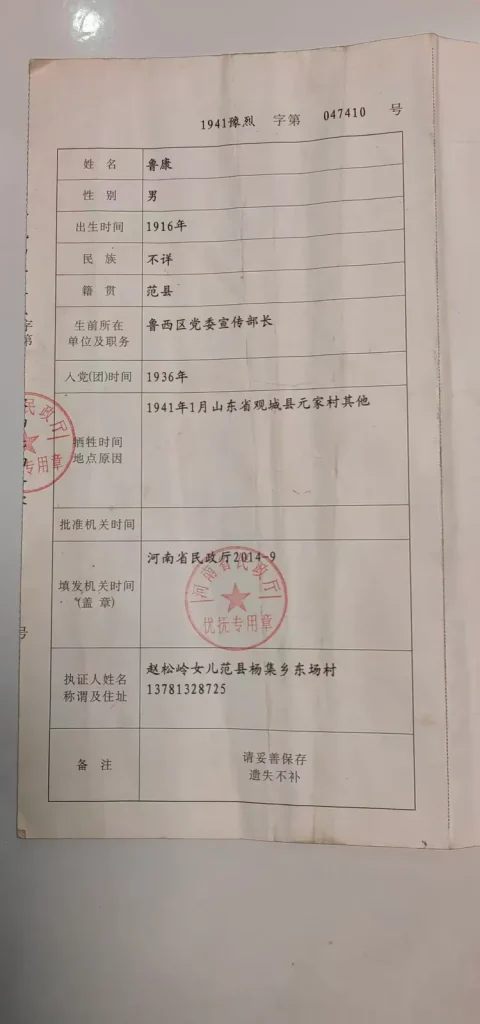 1941豫烈 字第 047410 号
姓 名 鲁康
性 别 男
出生时间 1916年
民 族 不详
籍 贯 范县
生前所在
单位及职务 鲁西区党委宣传部长
入党(团)时间 1936年
牺牲时间
地点原因 1941年1月山东省观城县元家村其他
批准机关时间
填发机关时间
(盖 章) 河南省民政厅2014-9
河南省民政厅
优抚专用章
执证人姓名
称谓及住址 赵松岭女儿范县杨集乡东场村
13781328725
备 注 请妥善保存
遗失不补
字
第
号
民政厅
专用章